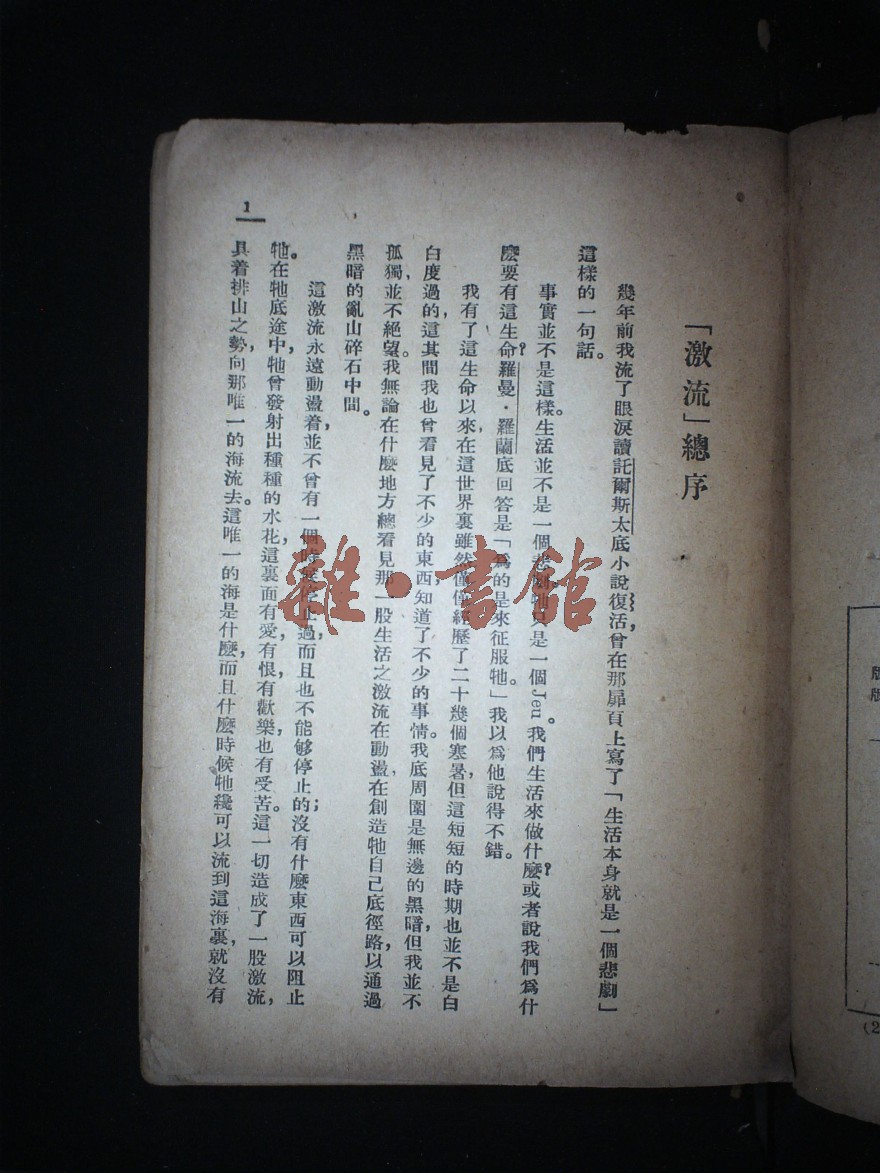 「激流」總序
幾年前我流了眼淚讀託爾斯太底小說復活，曾在那扉頁上寫了「生活本身就是一個悲劇」
這樣的一句話。
事實並不是這樣。生活並不是一個悲劇。牠是一個Jeu。我們生活來做什麼？或者說我們爲什
麼要有這生命？羅曼・羅蘭底回答是「爲的是來征服牠。」我以爲他說得不錯。
我有了這生命以來，在這世界裏雖然僅僅經歷了二十幾個寒暑，但這短短的時期也並不是白
白度過的，這其間我也曾看見了不少的東西知道了不少的事情。我底周圍是無邊的黑暗，但我並不
孤獨，並不絕望。我無論在什麼地方總看見那一股生活之激流在動盪，在創造牠自己底徑路，以通過
黑暗的亂山碎石中間。
這激流永遠動盪着，並不曾有一個時候停止過，而且也不能够停止的；沒有什麼東西可以阻止
牠。在牠底途中，牠曾發射出種種的水花，這裏面有愛，有恨，有歡樂，也有受苦。這一切造成了一股激流，
具着排山之勢，向那唯一的海流去。這唯一的海是什麼，而且什麼時候牠纔可以流到這海裏，就沒有
1
雜・書館
版
版
(2